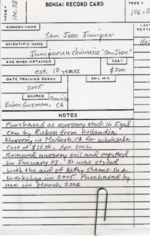 BONSAI RECORD CARD
TREE #
COMMON NAME
San Jose Juniper
SCIENTIFIC NAME
Juniperus chinensis "San Jose"
AGE
COST
est. 10 years
$200
DATE TRAINING BEGAN
2005
SOURCE
Ruben Guzman, CA
NOTES
Purchased as nursery stock in 5 gal
can by Ruben from
Nursery in Modesto, CA for wholesale
cost of Apr. 2002.
Removed nursery soil and repotted
in January 03. It was styled
with the aid of Kathy Shaner in a
workshop in 2005. Purchased by
me in March, 2006